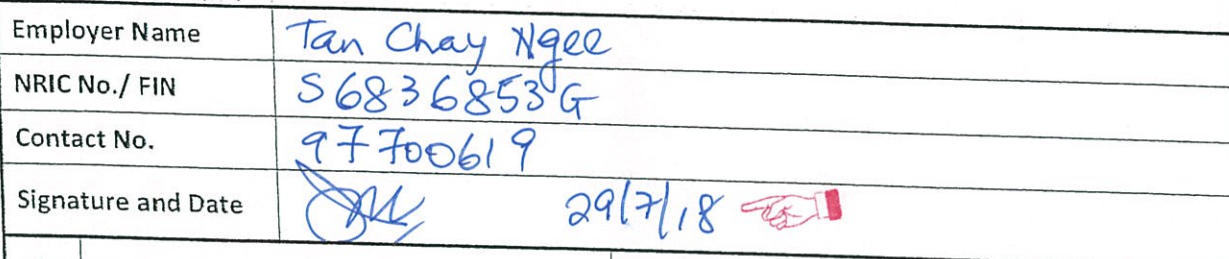 Employer Name Tan Chay Ngee
NRIC No./ FIN S6836853G
Contact No. 97700619
Signature and Date 29/7/18